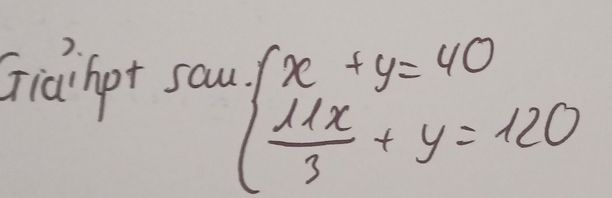 Giải hpt sau. { x + y = 40
11x/3 + y = 120